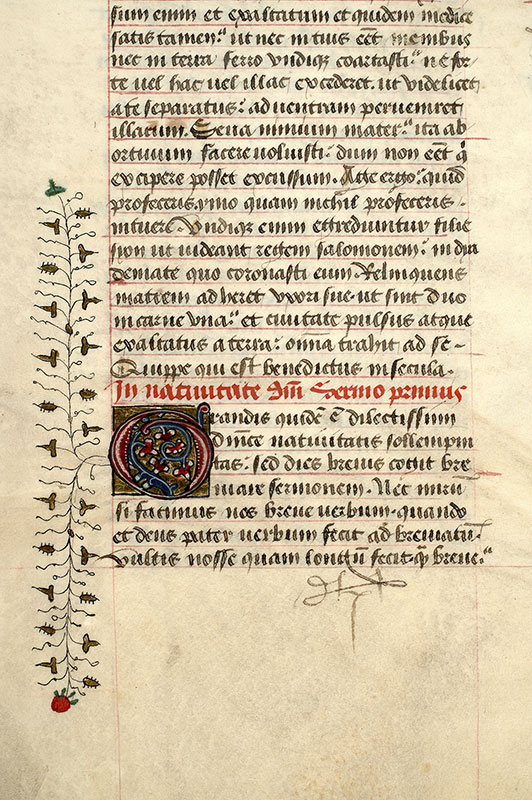 sum enim et exaltatum et quidem modice
satis tamen: ut nec intus eēt menibus
nec in terra ferro undiqȝ coartasti: ne for
te uel hac uel illac excederet. ut uidelicet
a te separatus: ad uentram perueniret
illarum. Seua nimium mater: ita ab
ortiuum facere uoluisti: dum non eēt qͥ
excipere posset excussum. Age ergo: quid
profeceris ymo quam nichil profeceris.
intuere. Undiqȝ enim egrediuntur filie
syon ut uideant regem salomonem: in dya
demate quo coronasti eum. Relinquens
matrem adheret uxori sue ut sint duo
in carne una: et ciuitate pulsus atque
exaltatus a terra: omīa trahit ad se.
Quippe qui est benedictus in secula.
In natiuitate dn̄i Sermo primus
Grandis quidē ē dilectissimi
dn̄ice natiuitatis sollempni
tas. sed dies breuis cogit bre
uiare sermonem. Nec mirū
si facimus nos breue uerbum. quando
et deus pater uerbum fecit ad breuiatū.
Uultis nosse quam longū fecit. qͣm breue: